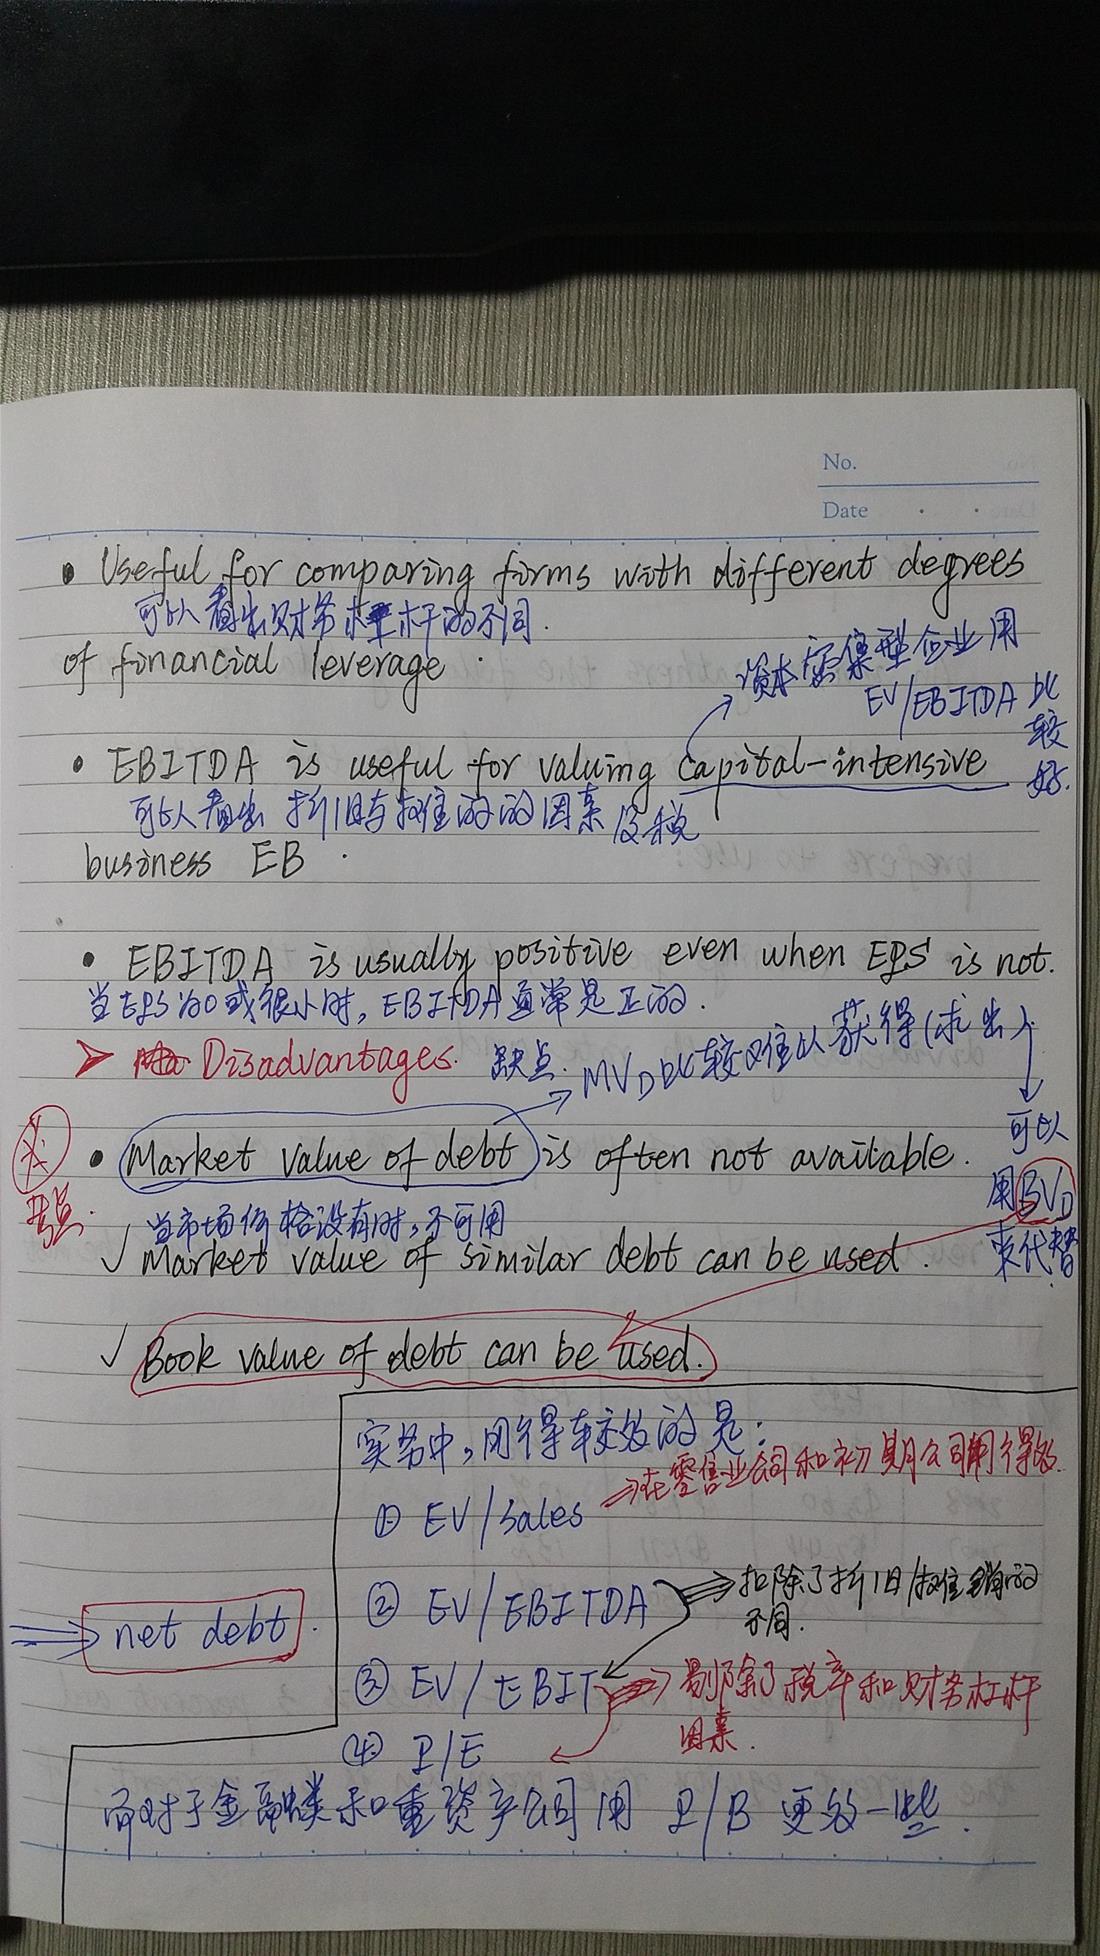 No.
Date
• Useful for comparing firms with different degrees
可以看出财务杠杆的不同.
of financial leverage.
资本密集型企业用
EV/EBITDA 比
较
好.
• EBITDA is useful for valuing capital-intensive
可以看出折旧与摊的的因素及税
business EB.
• EBITDA is usually positive even when EPS is not.
当EPS为0或很小时,EBITDA通常是正的.
➢ Disadvantages. 缺点.
MVD比较难以获得(求出)
可以
用BVD
来代替
考点.
• Market value of debt is often not available.
当市场价格没有时,不可用
✓ Market value of similar debt can be used.
✓ Book value of debt can be used.
实务中,用得较多的是:
① EV/Sales
⇒在零售业公司和初期公司用得多.
② EV/EBITDA
⇒扣除了折旧/摊销的
不同.
③ EV/EBIT
⇒剔除了税率和财务杠杆
因素.
④ P/E
⇒ net debt.
而对于金融类和重资产公司用 P/B 更多一些.